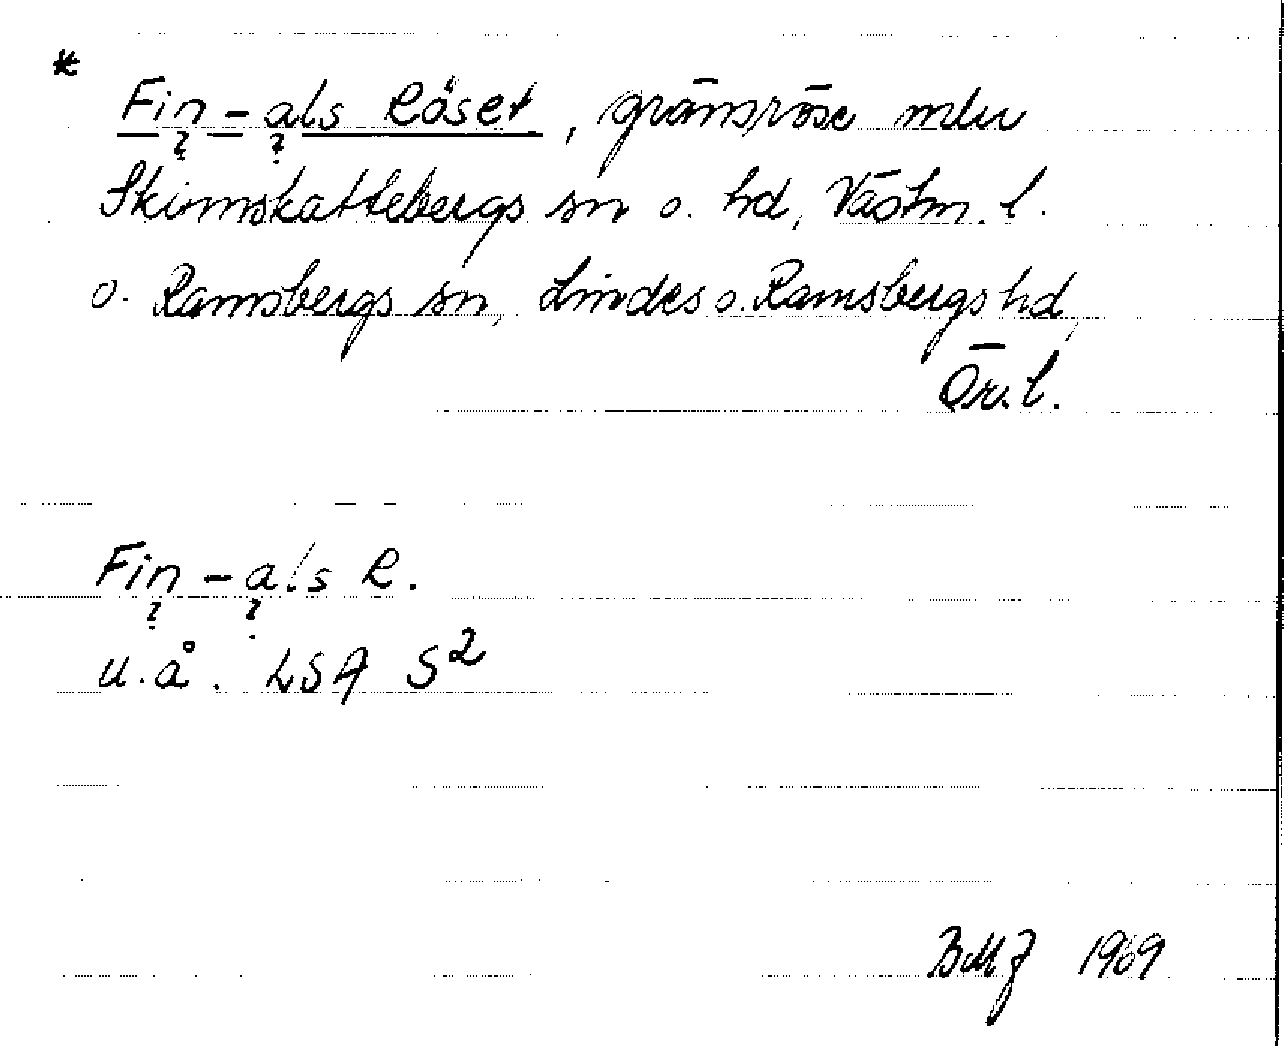 *
Fin-als Röset, gränsröse mlu
? ?
Skinnskattebergs sn o. hd, Västm. l.
o. Ramsbergs sn, Lindes o. Ramsbergs hd,
Ör. l.
Fin-als R.
? ?
u.å. LSA S2
1969